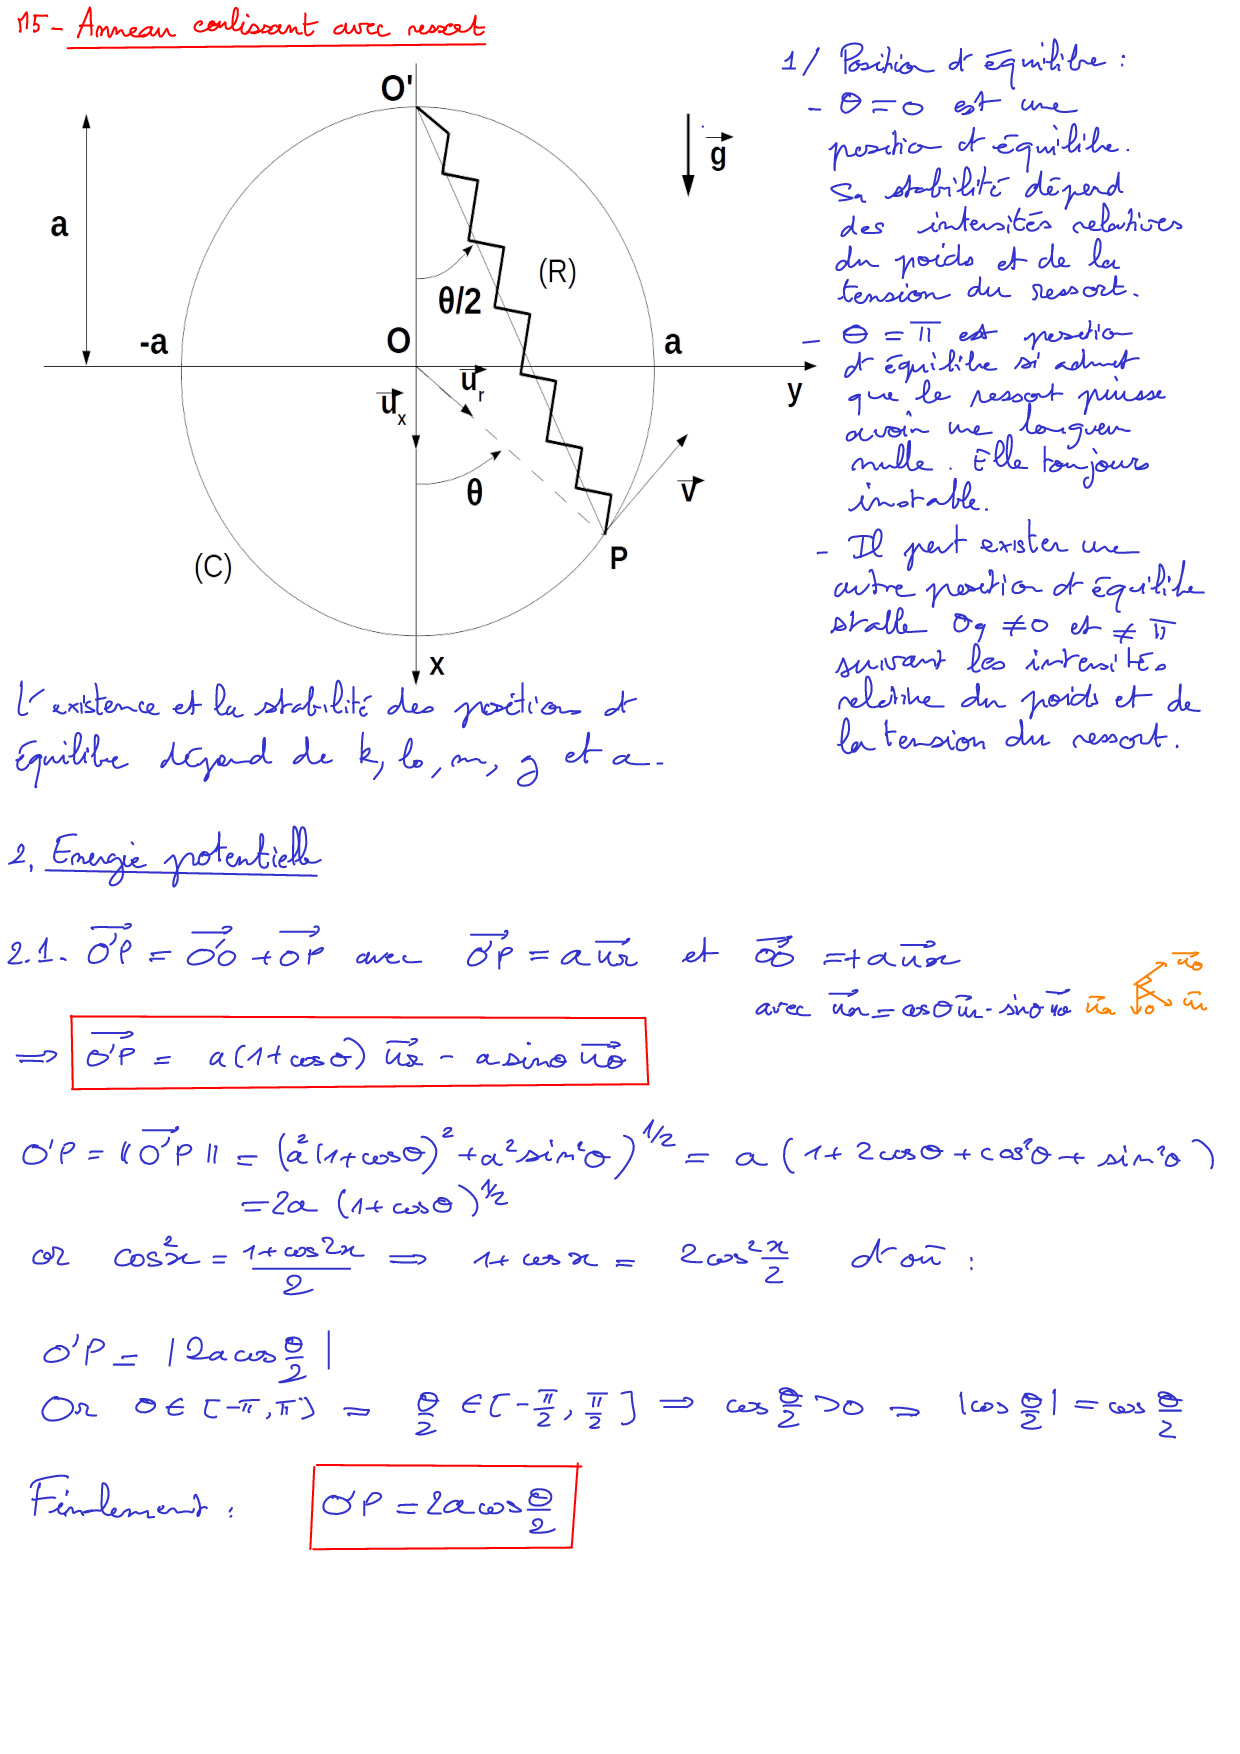 M5 - Anneau coulissant avec ressort
O'
a
g
θ/2
(R)
-a
O
a
y
u_x
u_r
θ
v
P
(C)
x
1/ Position d'équilibre :
- θ = 0 est une
position d'équilibre.
Sa stabilité dépend
des intensités relatives
du poids et de la
tension du ressort.
- θ = π est position
d'équilibre si admet
que le ressort puisse
avoir une longueur
nulle. Elle toujours
instable.
- Il peut exister une
autre position d'équilibre
stable θq ≠ 0 et ≠ π
suivant les intensités
relative du poids et de
la tension du ressort.
L'existence et la stabilité des positions d'
équilibre dépend de k, l₀, m, g et a.
2. Energie potentielle
2.1. O'P = O'O + OP avec O'P = a u_r et OO = +a u_x
avec u_x = cosθ u_r - sinθ u_θ
u_θ
u_x θ u_r
⇒ O'P = a(1+cosθ) u_r - a sinθ u_θ
O'P = ||O'P|| = (a²(1+cosθ)² + a² sin²θ)^1/2 = a (1 + 2cosθ + cos²θ + sin²θ)
= 2a (1+cosθ)^1/2
or cos²x = (1+cos2x)/2 ⇒ 1+cos x = 2cos² x/2 d'où :
O'P = |2a cos θ/2|
Or θ ∈ [-π, π] ⇒ θ/2 ∈ [-π/2, π/2] ⇒ cos θ/2 > 0 ⇒ |cos θ/2| = cos θ/2
Finalement : O'P = 2a cos θ/2